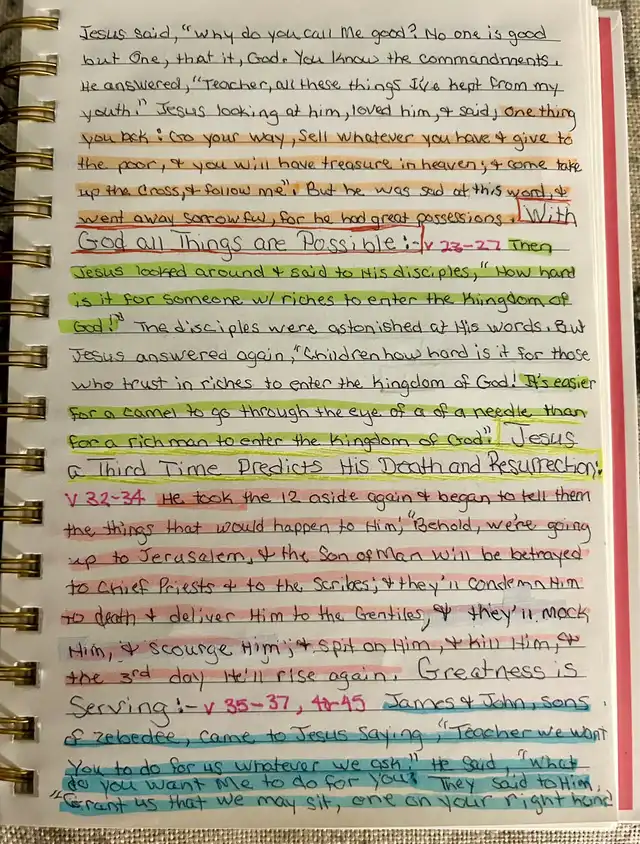 Jesus said, "Why do you call Me good? No one is good
but One, that it, God. You know the commandments.
He answered, "Teacher, all these things I've kept from my
youth." Jesus looking at him, loved him, & said, one thing
you lack: Go your way, sell whatever you have & give to
the poor, & you will have treasure in heaven; & come take
up the cross, & follow me". But he was sad at this word, &
went away sorrowful, for he had great possessions. With
God all Things are Possible:- v 23-27 Then
Jesus looked around & said to His disciples, "How hard
is it for someone w/ riches to enter the Kingdom of
God!" The disciples were astonished at His words. But
Jesus answered again, "Children how hard is it for those
who trust in riches to enter the kingdom of God! It's easier
for a camel to go through the eye of a of a needle, than
for a rich man to enter the Kingdom of God". Jesus
a Third Time Predicts His Death and Resurrection:
v 32-34 He took the 12 aside again & began to tell them
the things that would happen to Him; "Behold, we're going
up to Jerusalem, & the Son of Man will be betrayed
to Chief Priests & to the Scribes; & they'll condemn Him
to death & deliver Him to the Gentiles, & they'll mock
Him, & scourge Him; & spit on Him, & kill Him, &
the 3rd day He'll rise again. Greatness is
Serving:- v 35-37, 40-45 James & John, sons
of zebedee, came to Jesus saying, "Teacher we want
You to do for us whatever we ask". He said, "What
do you want Me to do for you? They said to Him,
"Grant us that we may sit, one on your right hand